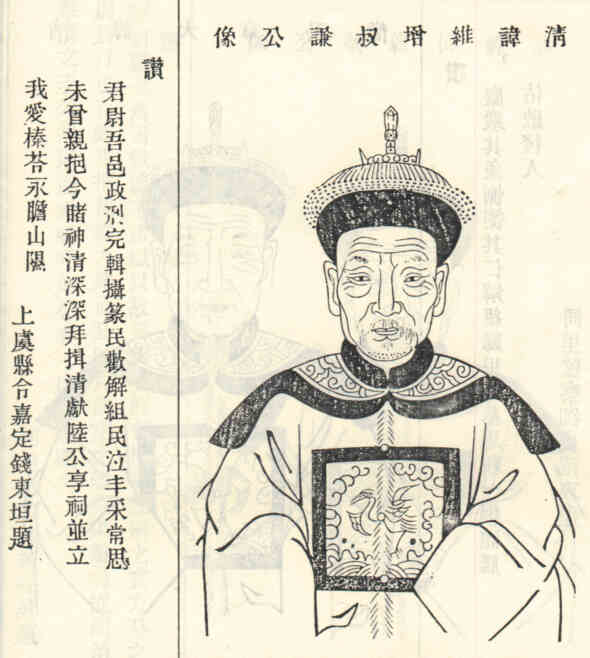 清諱維增叔謙公像
讚
君尉吾邑政完輯攝篆民歡解組民泣丰采常思
未曾親挹今睹神清深深拜揖清獻陸公享祠並立
我愛榛苓永瞻山隰
上虞縣令嘉定錢東垣題